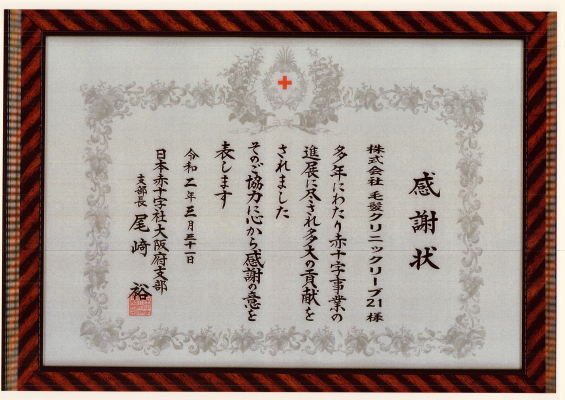 感謝状
株式会社 毛髪クリニックリーブ21 様
多年にわたり赤十字事業の
進展に尽され多大の貢献を
されました
そのご協力に心から感謝の意を
表します
令和二年三月三十一日
日本赤十字社大阪府支部
支部長 尾﨑 裕